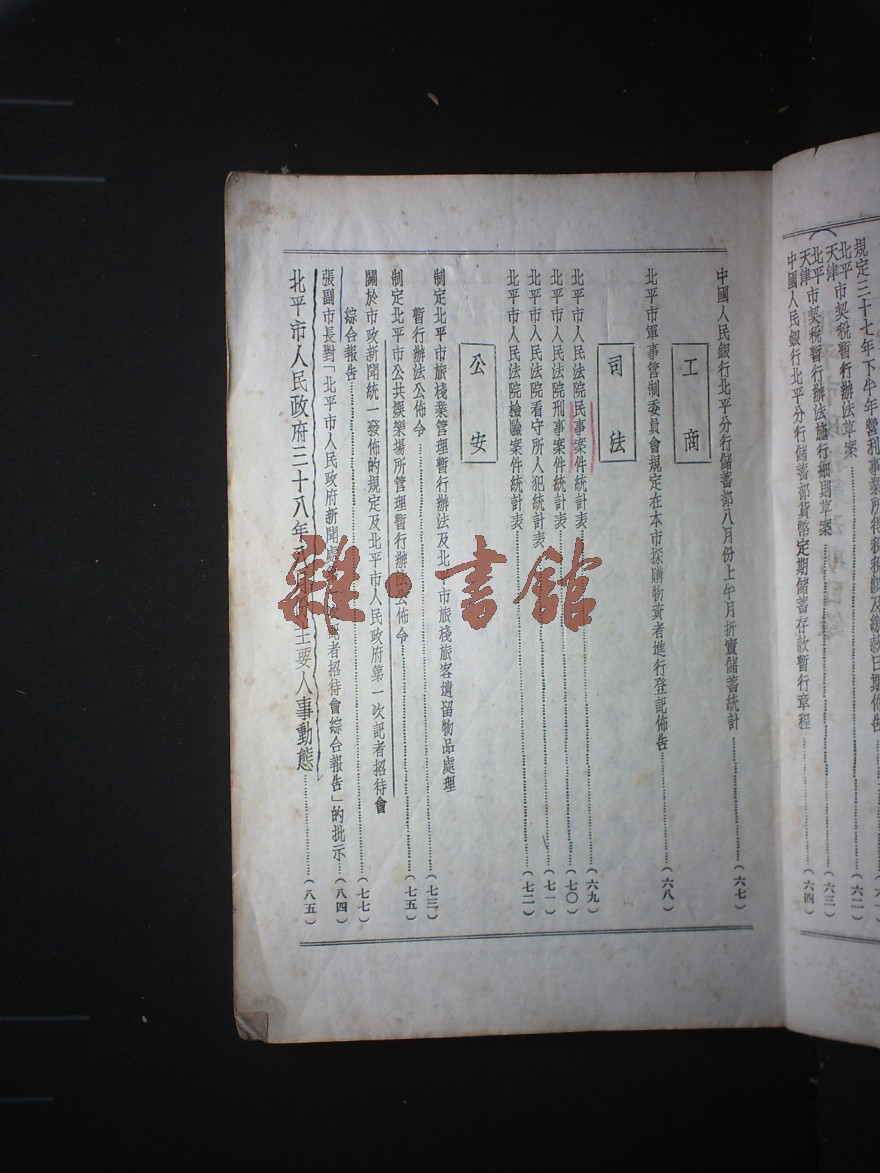 規定三十七年下半年營利事業所得稅稅額及繳款日期佈告
北平市契稅暫行辦法草案……(六二)
天津
北平市契稅暫行辦法施行細則草案……(六三)
天津
中國人民銀行北平分行儲蓄部貨幣定期儲蓄存款暫行章程……(六四)
中國人民銀行北平分行儲蓄部八月份上半月折實儲蓄統計……(六七)
工商
北平市軍事管制委員會規定在本市採購物資者進行登記佈告……(六八)
司法
北平市人民法院民事案件統計表……(六九)
北平市人民法院刑事案件統計表……(七〇)
北平市人民法院看守所人犯統計表……(七一)
北平市人民法院檢驗案件統計表……(七二)
公安
制定北平市旅棧業管理暫行辦法及北市旅棧旅客遺留物品處理
暫行辦法公佈令……(七三)
制定北平市公共娛樂場所管理暫行辦法公佈令……(七五)
關於市政新聞統一發佈的規定及北平市人民政府第一次記者招待會
綜合報告……(七七)
張副市長對「北平市人民政府新聞處記者招待會綜合報告」的批示……(八四)
北平市人民政府三十八年主要人事動態……(八五)
雜·書館